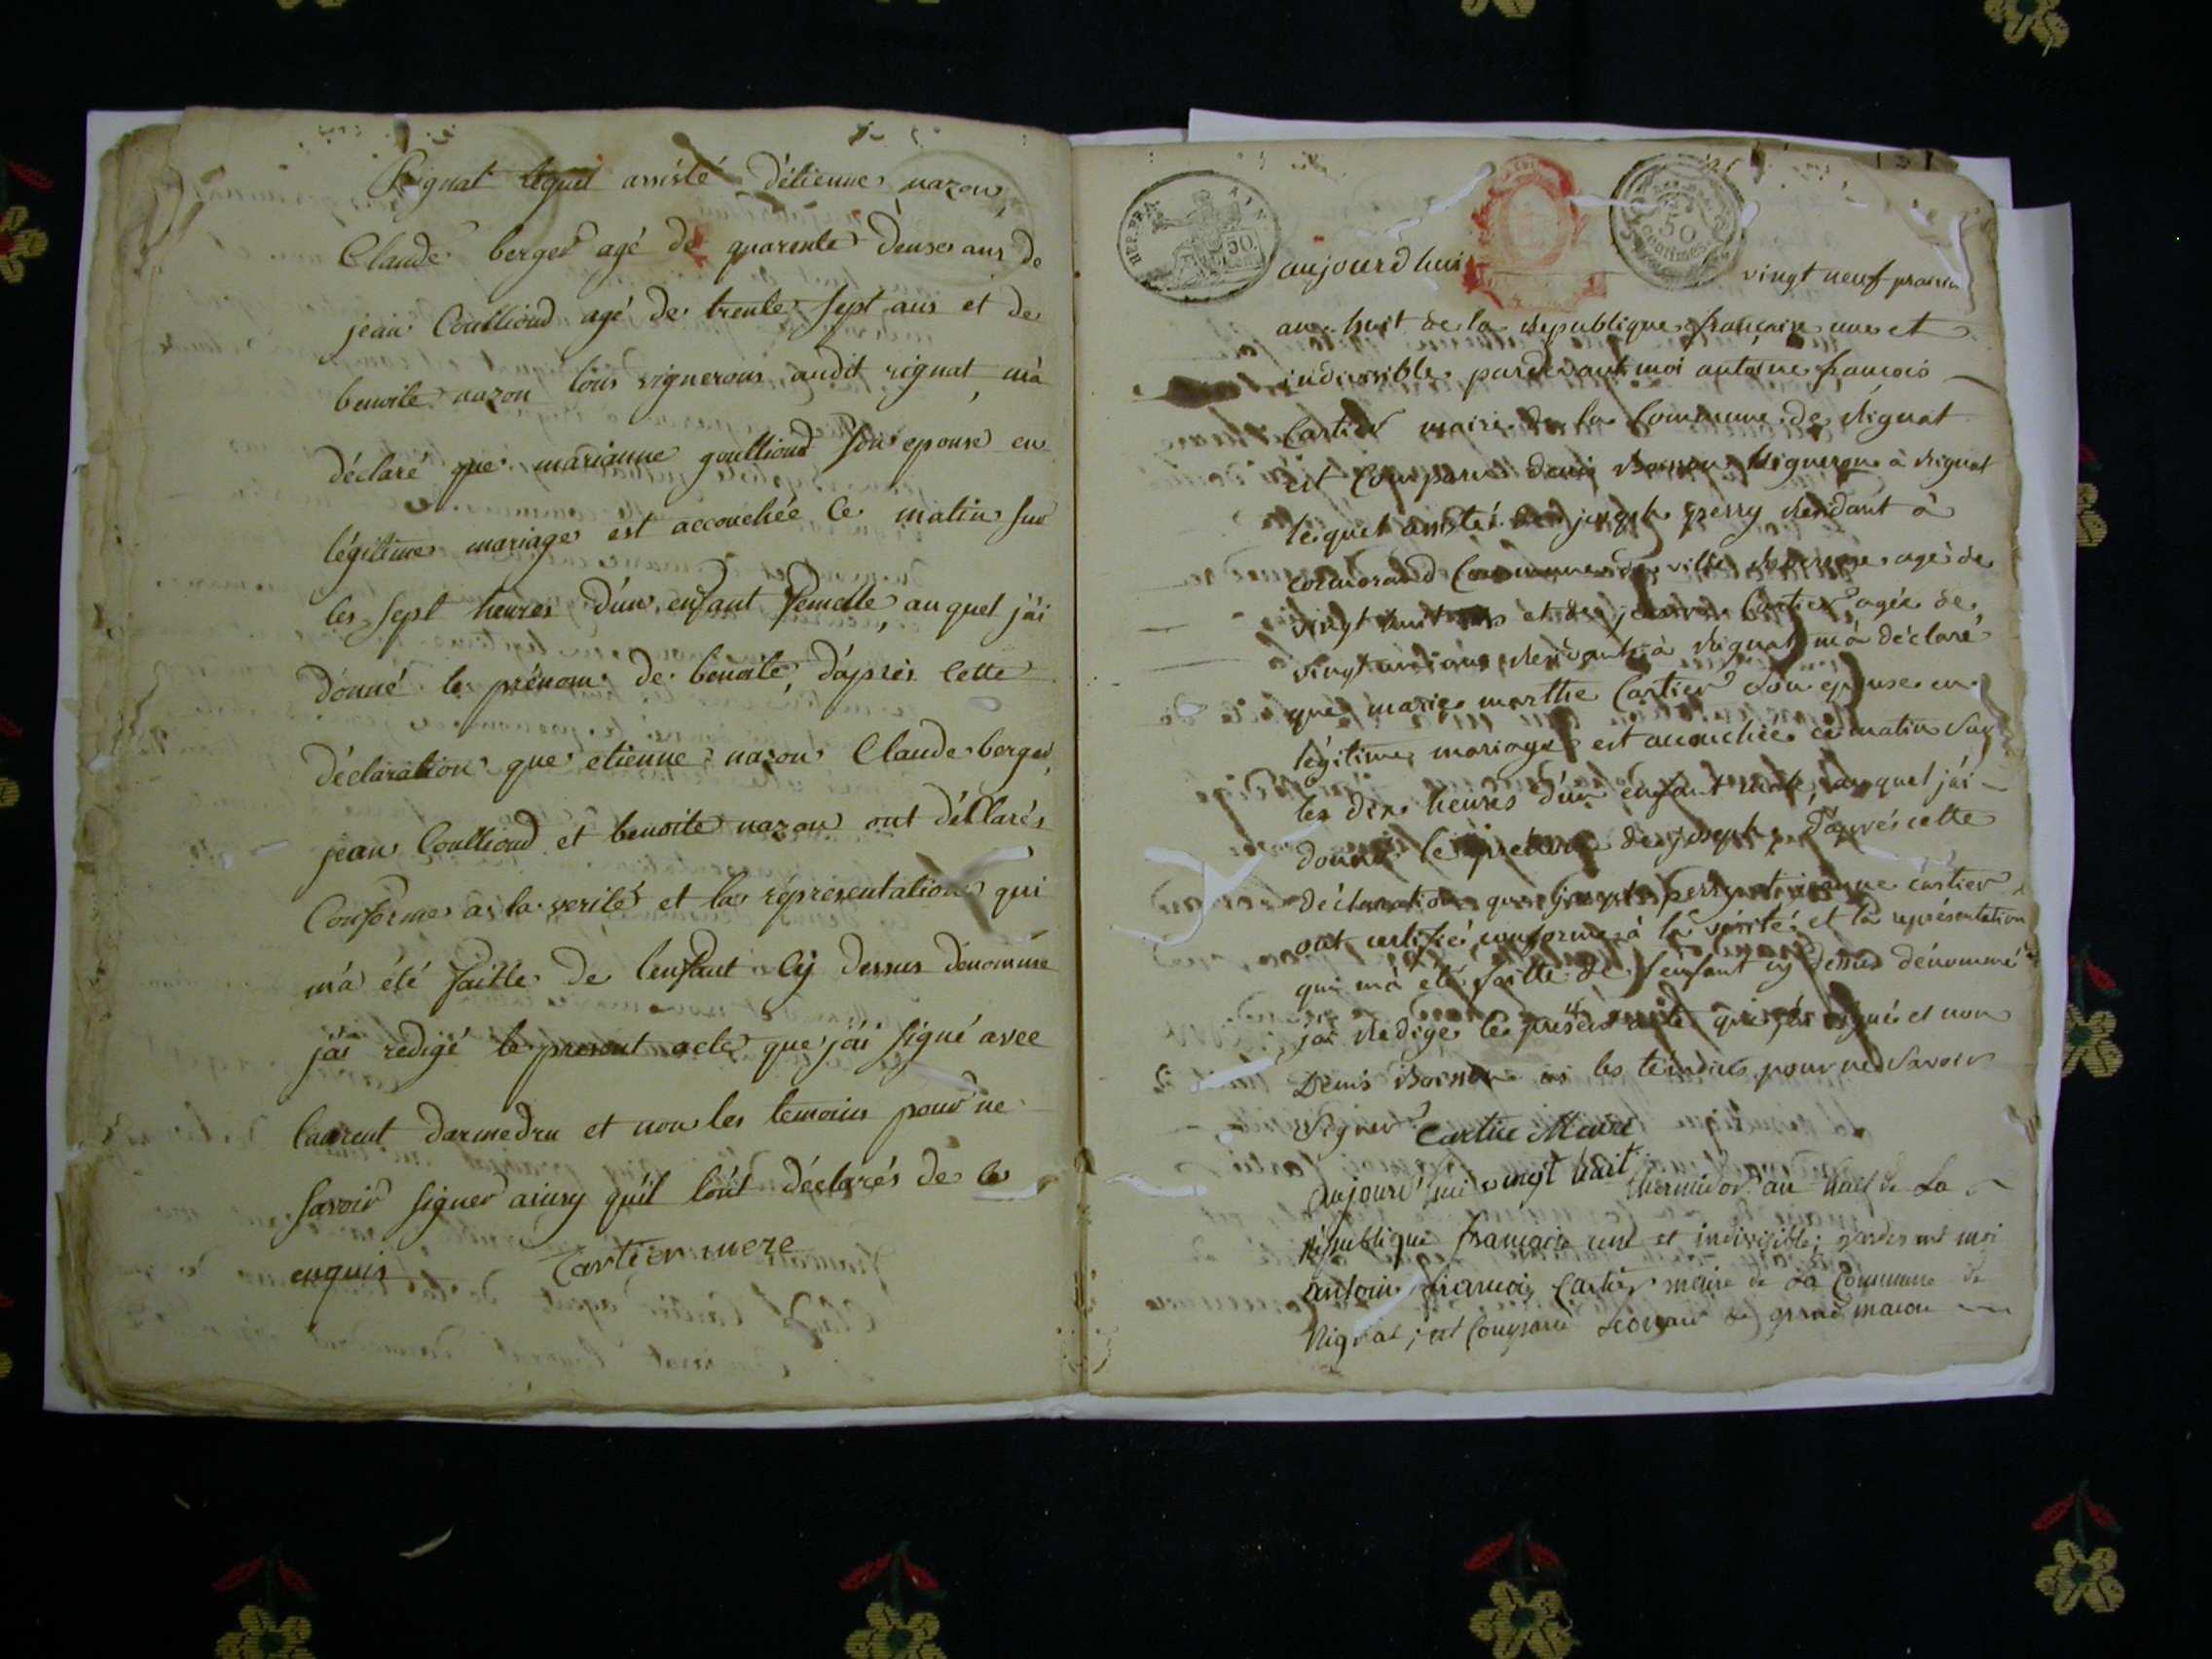 Rignat lequel assisté d'étienne nazon
Claude berger agé de quarente deuse ans de
jean Coulliond agé de trente sept ans et de
benoite nazon tous vignerons audit rignat, m'a
déclaré que marianne goulliond son epouse en
légitime mariage est accouchée ce matin sur
les sept heures d'un enfant femelle, auquel j'ai
donné le prénom de benoite, d'après cette
déclaration que etienne nazon Claude berger,
jean Coulliond et benoite nazon ont déllarés
Conforme a la verité et la répresentation qui
m'a été faitte de l'enfant cÿ dessus dénommé
j'ai redigé le present acte que j'ai signé avec
laurent darmedru et non les temoins pour ne
savoir signer ainsy qu'il l'ont déclarés de ce
enquis Cartier mere
REP. FRA. AIN
50
50
centimes
aujourd'hui vingt neuf prairial
an huit de la république française une et
indivisible pardevant moi antoine francois
Cartier maire de la Commune de Rignat
est Comparu denis Boisson vigneron à Rignat
lequel assisté de joseph perry Residant à
cormorand Commune de ville Reversure agé de
vingt huit ans et de jeanne Cartier agée de
vingt ans Residante à Rignat m'a déclaré
que marie marthe Cartier son epouse en
légitime mariage est accouchée ce matin sur
les dix heures d'un enfant male, auquel j'ai
donné le prénom de joseph, d'après cette
déclaration que joseph perry et jeanne cartier
ont certifié conforme à la vérité et la représentation
qui m'a été faitte de l'enfant cy dessus dénommé
j'ai Redigé le présent acte que j'ai signé et non
Denis Boisson ni les témoins pour ne savoir
signer Cartier Maire
Aujourd'hui vingt huit thermidor an huit de La
République francaise une et indivisible; pardevant moi
antoine francois Cartier maire de La Commune de
Rignat; est Comparu macon